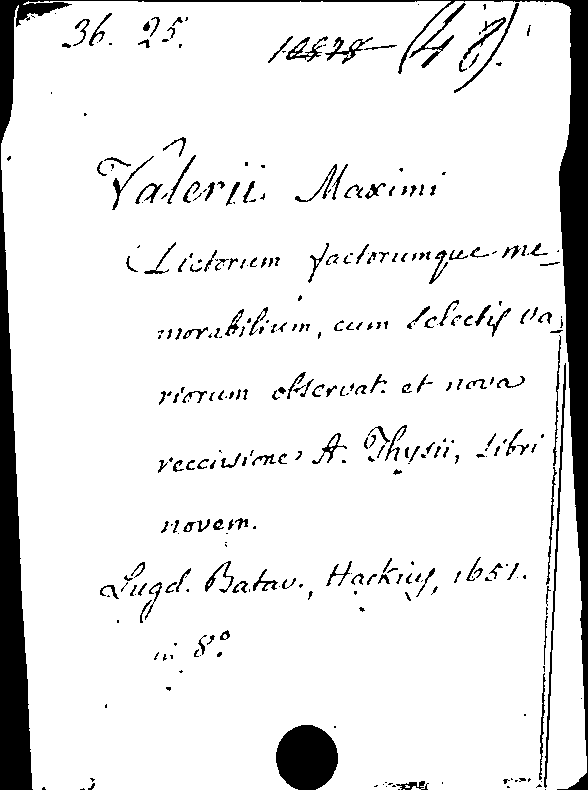 36. 25.
10878 (48).
Valerii Maximi
Dictorum factorumque me-
morabilium, cum selectis va-
riorum observat. et nova
reccisione A. Thysii, Libri
novem.
Lugd. Batav., Hackius, 1651.
in 8°